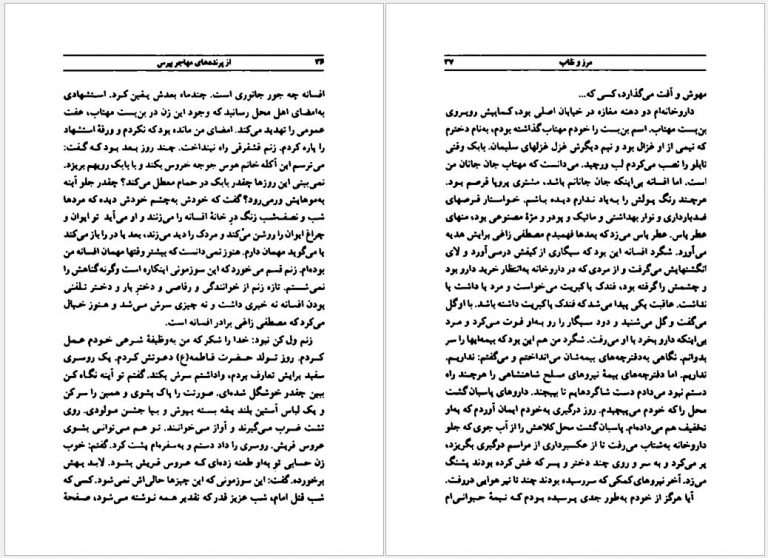 ۳۶ از پرنده‌های مهاجر بپرس
افسانه چه جور جانوری است. چندماه بعدش یقین کرد. استشهادی
به‌امضای اهل محل رسانید که وجود این زن در بن‌بست مهتاب، عفت
عمومی را تهدید می‌کند. امضای من مانده بود که نکردم و ورقهٔ استشهاد
را پاره کردم. زنم قشقرقی راه نینداخت. چند روز بعد بود که گفت:
می‌ترسم این اکله خانم هوس جوجه خروس بکند و با بابک رویهم بریزد.
نمی‌بینی این روزها چقدر بابک در حمام معطل می‌کند؟ چقدر جلو آینه
به‌موهایش ورمی‌رود؟ گفت که خودش به‌چشم خودش دیده که مردها
شب و نصف‌شب زنگ در خانهٔ افسانه را می‌زنند و او می‌آید تو ایوان و
چراغ ایوان را روشن می‌کند و مردک را دید می‌زند، بعد یا در را باز می‌کند
یا می‌گوید مهمان دارم. هنوز نمی‌دانست که بیشتر وقتها مهمان افسانه من
بوده‌ام. زنم قسم می‌خورد که این سوزمونی اینکاره است وگرنه گناهش را
نمی‌شستم. تازه زنم از خوانندگی و رقاصی و دختر یار و دختر تلفنی
بودن افسانه نه خبری داشت و نه چیزی سرش می‌شد و هنوز خیال
می‌کرد که مصطفی زاغی برادر افسانه است.
زنم ول کن نبود: خدا را شکر که من به‌وظیفهٔ شرعی خودم عمل
کردم. روز تولد حضرت فاطمه(ع) دعوتش کردم. یک روسری
سفید برایش تعارف بردم، واداشتم سرش بکند. گفتم تو آینه نگاه کن
ببین چقدر خوشگل شده‌ای. صورتت را پاک بشوی و همین را سرکن
و یک لباس آستین بلند یقه بسته بپوش و بیا جشن مولودی. روی
تشت ضرب می‌گیرند و آواز می‌خوانند. تو هم می‌توانی بشوی
عروس قریش. روسری را داد دستم و به‌سفره‌ام پشت کرد. گفتم: خوب
زن حسابی تو به‌او طعنه زده‌ای که عروس قریش بشود. لابد بهش
برخورده. گفت: این سوزمونی که این چیزها حالی‌اش نمی‌شود. کسی که
شب قتل امام، شب عزیز قدر که تقدیر همه نوشته می‌شود، صفحهٔ
مرز و نقاب ۳۷
مهوش و آفت می‌گذارد، کسی که...
داروخانه‌ام دو دهنه مغازه در خیابان اصلی بود، کمابیش روبروی
بن‌بست مهتاب. اسم بن‌بست را خودم مهتاب گذاشته بودم، به‌نام دخترم
که نیمی از او غزال بود و نیم دیگرش غزل غزلهای سلیمان. بابک وقتی
تابلو را نصب می‌کردم لب ورچید. می‌دانست که مهتاب جان جانان من
است. اما افسانه بی‌اینکه جان جانانم باشد، مشتری پروپا قرصم بود.
هرچند رنگ پولش را به‌یاد ندارم دیده باشم. خواستار قرصهای
ضدبارداری و نوار بهداشتی و ماتیک و پودر و مژهٔ مصنوعی بود، منهای
عطر یاس. عطر یاس می‌زد که بعدها فهمیدم مصطفی زاغی برایش هدیه
می‌آورد. شگرد افسانه این بود که سیگاری از کیفش درمی‌آورد و لای
انگشتهایش می‌گرفت و از مردی که در داروخانه به‌انتظار خرید دارو بود
و چشمش را گرفته بود، فندک یا کبریت می‌خواست و مرد یا داشت یا
نداشت. عاقبت یکی پیدا می‌شد که فندک یا کبریت داشته باشد. با او گل
می‌گفت و گل می‌شنید و دود سیگار را رو به‌او فوت می‌کرد و مرد
بی‌اینکه دارو بخرد با او می‌رفت. شگرد من هم این بود که بیمه‌ایها را سر
بدوانم. نگاهی به‌دفترچه‌های بیمه‌شان می‌انداختم و می‌گفتم: نداریم.
نداریم. اما دفترچه‌های بیمهٔ نیروهای مسلح شاهنشاهی را هرچند راه
دستم نبود می‌دادم دست شاگردهایم تا بپیچند. داروهای پاسبان گشت
محل را که خودم می‌پیچیدم. روز درگیری به‌خودم ایمان آوردم که به‌او
تخفیف هم می‌داده‌ام. پاسبان گشت محل کلاهش را از آب جوی که جلو
داروخانه به‌شتاب می‌رفت تا از عکسبرداری از مراسم درگیری بگریزد،
پر می‌کرد و به سر و روی چند دختر و پسر که غش کرده بودند پشنگ
می‌زد. آخر نیروهای کمکی که سررسیده بودند چند تا تیر هوایی دررفت.
آیا هرگز از خودم به‌طور جدی پرسیده بودم که نیمهٔ حیوانی‌ام